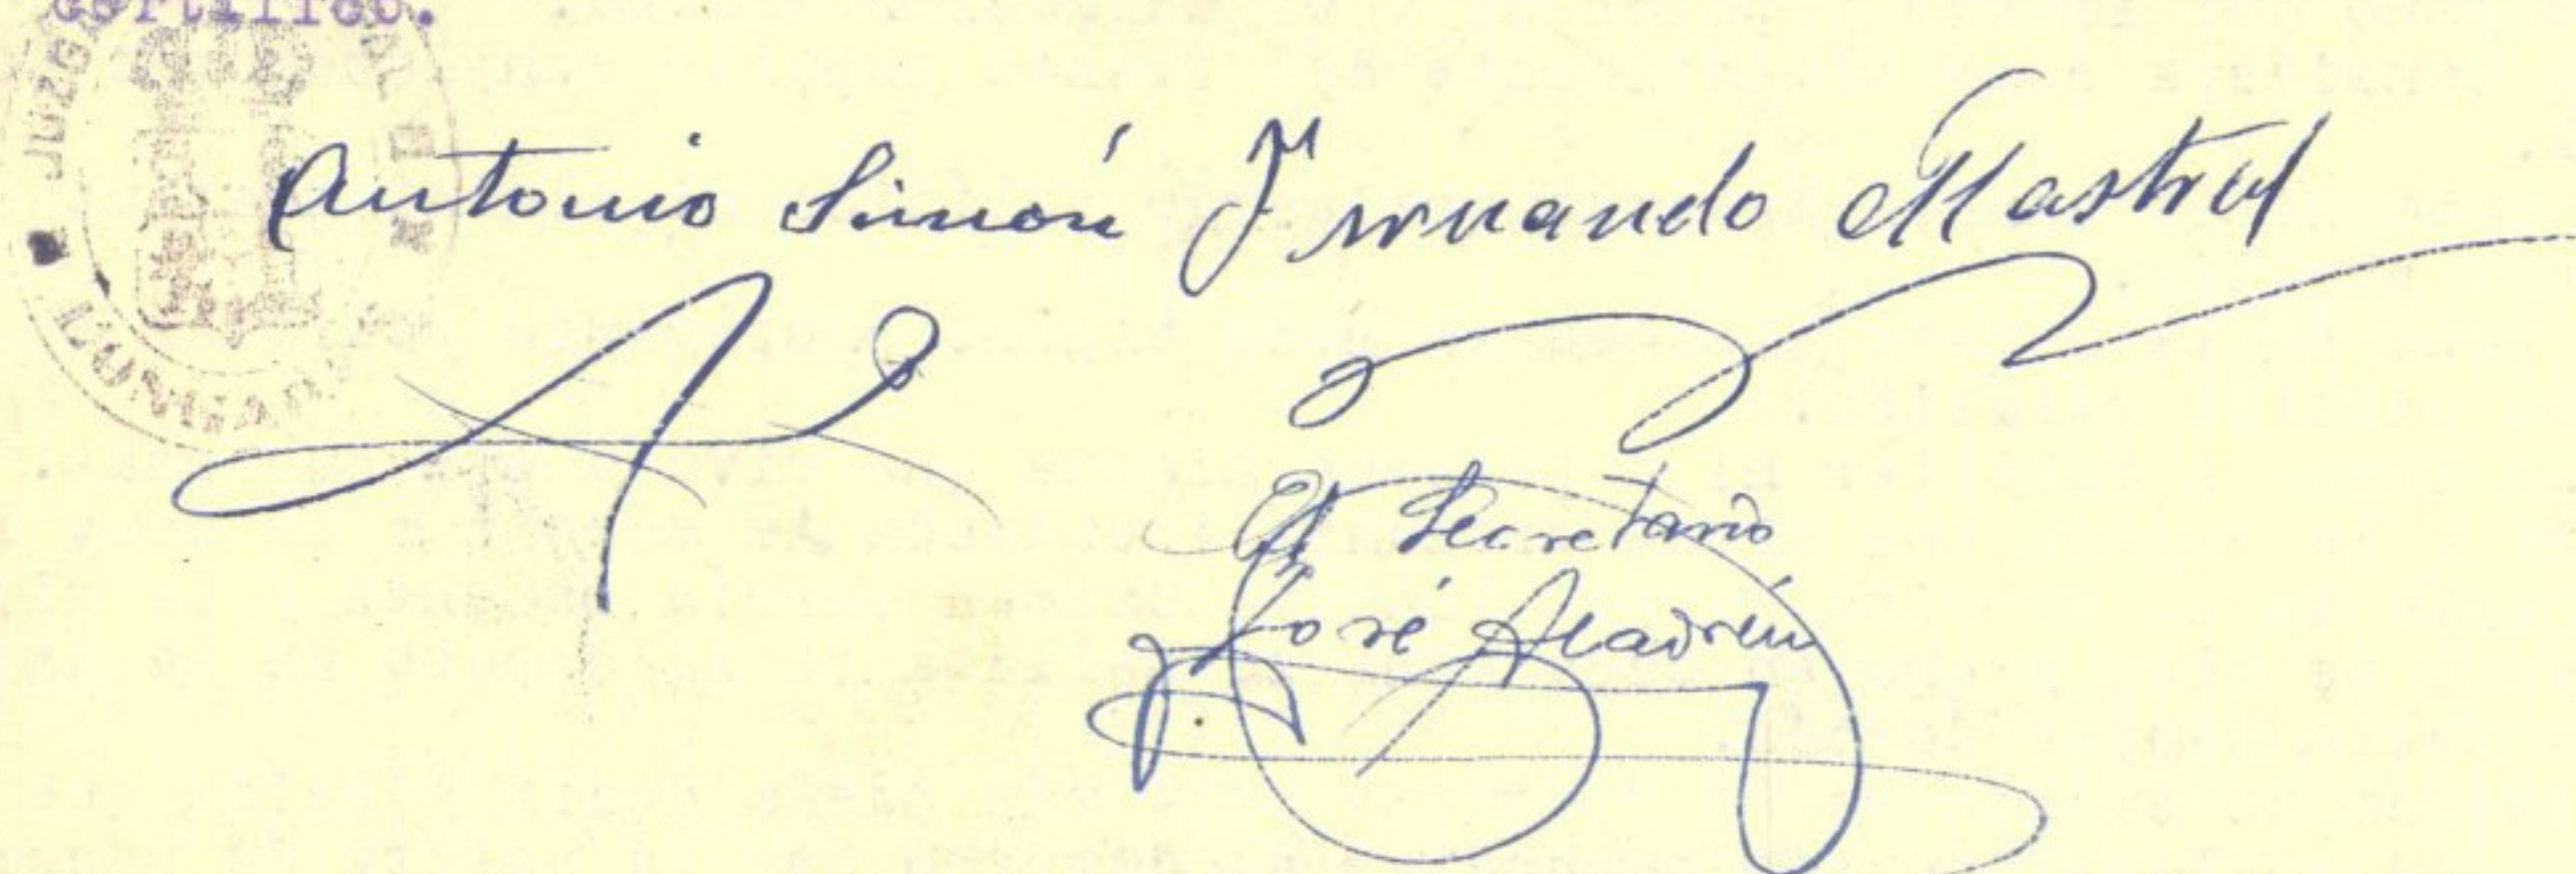 certifico.
Antonio Simón Fernando Mastral
El Secretario
José Aladrén